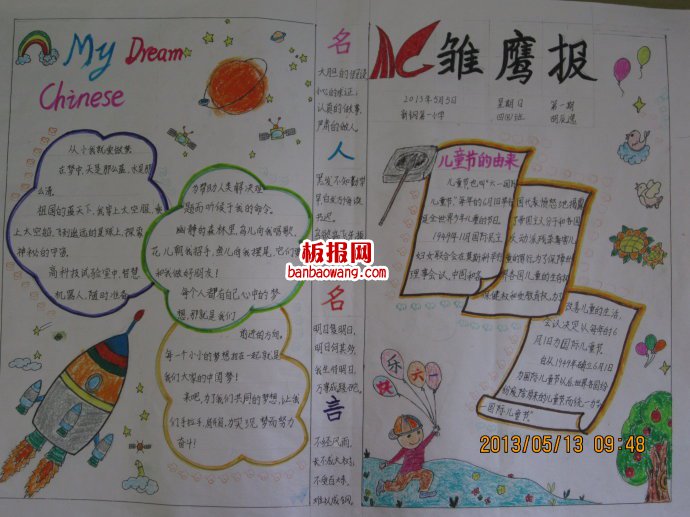 My Dream
Chinese
从小我就爱做梦
在梦中,天是那么蓝,水是那
么清
祖国的蓝天下,我穿上太空服,乘
上太空船,飞到遥远的星球上,探索
神秘的宇宙
高科技试验室中,智慧
机器人,随时准备
为帮助人类解决难
题而听候于我的命令。
幽静的森林里,鸟儿向我唱歌,
花儿朝我招手,鱼儿向我摆尾,它们
和我做好朋友!
每个人都有自己心中的梦
想,那就是我们
前进的方向。
每一个小小的梦想班在一起就是
我们大家的中国梦!
来吧,为了我们共同的梦想,让我
们手拉手,肩并肩,为实现梦而努力
奋斗!
名人名言
大胆的假设
小心的求证;
认真的做事,
严肃的做人。
黑发不知勤学
早,白首方悔读
书迟。
明日复明日,
明日何其多,
我生待明日,
万事成蹉跎。
不经风雨,
长不成大树;
不受百炼,
难以成钢。
雏鹰报
2013年5月5日
星期日
第一期
新钢第一小学
儿童节的由来
儿童节也叫“六一国际
儿童节”每年的6月1日举行
是全世界少年儿童的节日。
1949年11月国际民主
妇女联合会在莫斯科举行
理事会议,中国和各
国代表愤怒地揭露
了帝国主义分子和各国
反动派残杀毒害儿
童的罪行,为了保障世
界各国儿童的生存权
保健权和受教育权,为了
改善儿童的生活,
会议决定以每年的6
月1日为国际儿童节
自从1949年确立6月1日
为国际儿童节以后,世界各国纷
纷废除原来的儿童节而统一为
国际儿童节”
快乐六一
板报网
banbaowang.com
2013/05/13 09:48